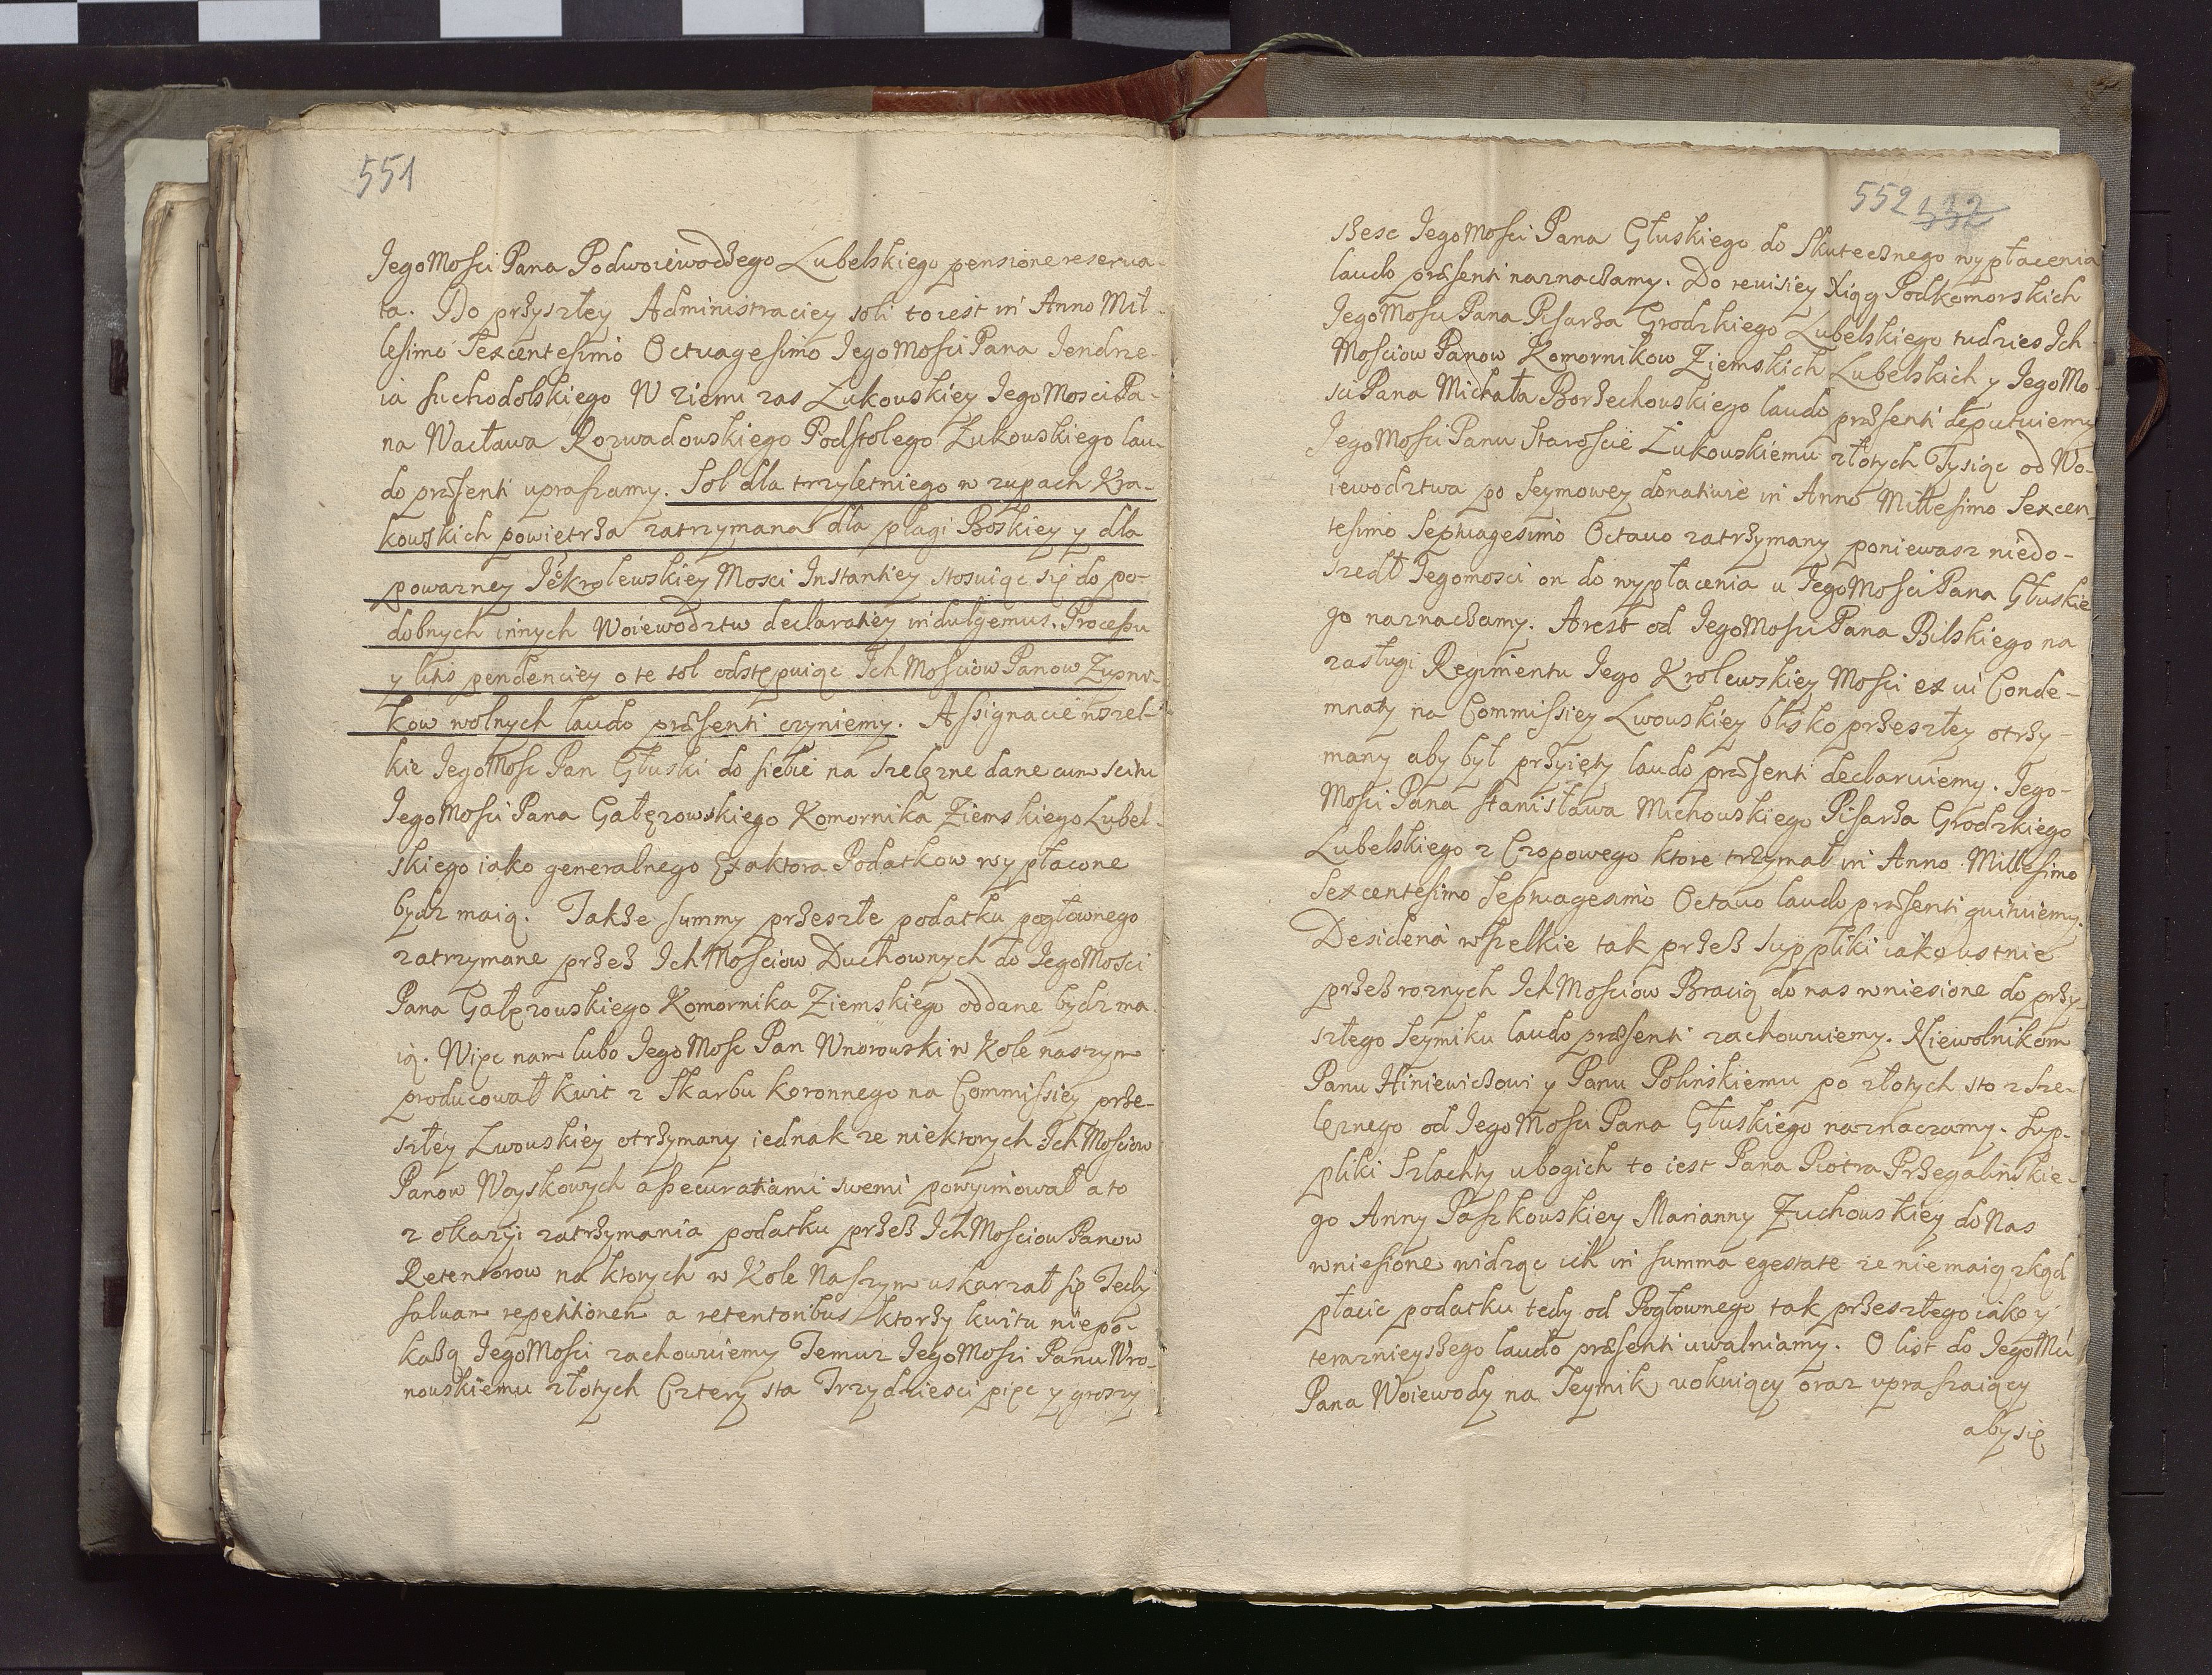 551
JegoMosci Pana Podwoiewodzego Lubelskiego pensione reserua-
ta. Do przyszłey Administraciey soli to iest in Anno Mil-
lesimo Sexcentesimo Octuagesimo JegoMosci Pana Jendrze-
ia Suchodolskiego W ziemi zas Łukowskiey JegoMosci Pa-
na Wacława Rozwadowskiego Podstolego Łukowskiego lau-
do præsenti upraszamy. Sol dla trzyletniego w zupach Kra-
kowskich powietrza zatrzymana dla plagi Boskiey y dla
powazney Jekrolewskiey Mosci Instantiey stosuiąc się do po-
dobnych innych Woiewodztw declaratiey indulgemus. Processu
y litis pendenciey o te sol odstępuiąc Ich Mosciow Panow Zupni-
kow wolnych laudo præsenti czyniemy. Assignacie wszel-
kie JegoMosc Pan Głuski do siebie na szelęzne dane cum scitu
JegoMosci Pana Gałęzowskiego Komornika Ziemskiego Lubel-
skiego iako generalnego Exaktora Podatkow wypłacone
bydz maią. Takze summy przeszłe podatku pogłownego
zatrzymane przez IchMosciow Duchownych do JegoMosci
Pana Gałęzowskiego Komornika Ziemskiego oddane bydz ma-
ią. Więc nam lubo JegoMosc Pan Wnorowski w Kole naszym
producował kwit z Skarbu koronnego na Commissiey prze-
szłey Lwowskiey otrzymany iednak ze niektorych IchMosciow
Panow Woyskowych assecuratiami swemi powyimował a to
z okazyi zatrzymania podatku przez IchMosciow Panow
Retentorow na ktorych w Kole Naszym uskarzał się Tedy
saluam repetitionem a retentoribus ktorzy kwitu niepo-
kazą JegoMosci zachowuiemy Temuz JegoMosci Panu Wno-
rowskiemu złotych Cztery sta Trzydziesci pięc y groszy
552 532
szesc JegoMosci Pana Głuskiego do Skutecznego wypłacenia
laudo præsenti naznaczamy. Do reuisiey Xiąg Podkomorskich
JegoMosci Pana Pisarza Grodzkiego Lubelskiego tudzies Ich-
Mosciow Panow Komornikow Ziemskich Lubelskich y JegoMo-
sci Pana Michała Borzechowskiego laudo præsenti deputuiemy
JegoMosci Panu Staroscie Łukowskiemu złotych Tysiąc od Wo-
iewodztwa po Seymowey donatiwie in Anno Millesimo Sexcen-
tesimo Septuagesimo Octauo zatrzymany poniewasz niedo-
szedł Jegomosci on do wypłacenia u JegoMosci Pana Głuskie
go naznaczamy. Arest od JegoMosci Pana Bilskiego na
zasługi Regimentu Jego Krolewskiey Mosci ex vi Conde-
mnaty na Commissiey Lwowskiey blisko przeszłey otrzy-
many aby był przyięty laudo præsenti declaruiemy. Jego-
Mosci Pana Stanisława Michowskiego Pisarza Grodzkiego
Lubelskiego z Czopowego ktore trzymał in Anno Millesimo
Sexcentesimo Septuagesimo Octauo laudo præsenti quituiemy.
Desideria wszelkie tak przez suppliki iako ustnie
przez roznych IchMosciow Bracią do nas wniesione do przy-
szłego Seymiku laudo præsenti zachowuiemy. Niewolnikom
Panu Hiniewiczowi y Panu Polinskiemu po złotych sto z sze-
lęznego od JegoMosci Pana Głuskiego naznaczamy. Sup-
pliki Szlachty ubogich to iest Pana Piotra Przegalinskie-
go Anny Paszkowskiey Marianny Zuchowskiey do Nas
wniesione widząc ich in summa egestate ze niemaią zkąd
płacic podatku tedy od Pogłownego tak przeszłego iako y
terazniejszego laudo præsenti uwalniamy. O list do JegoMci
Pana Woiewody na Seymik uokuiący oraz upraszaiący
aby się